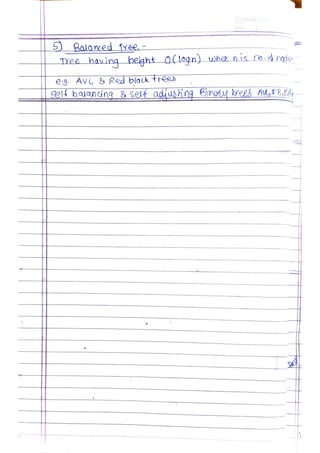 5) Balanced Tree :-
Tree having height O(logn) where n is no. of nodes
e.g. AVL & Red black trees
Self balancing & self adjusting Binary trees AVL,